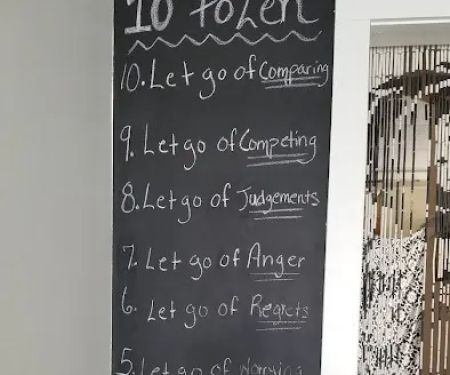 10 to Zen
10. Let go of Comparing
9. Let go of Competing
8. Let go of Judgements
7. Let go of Anger
6. Let go of Regrets
5. Let go of Worrying